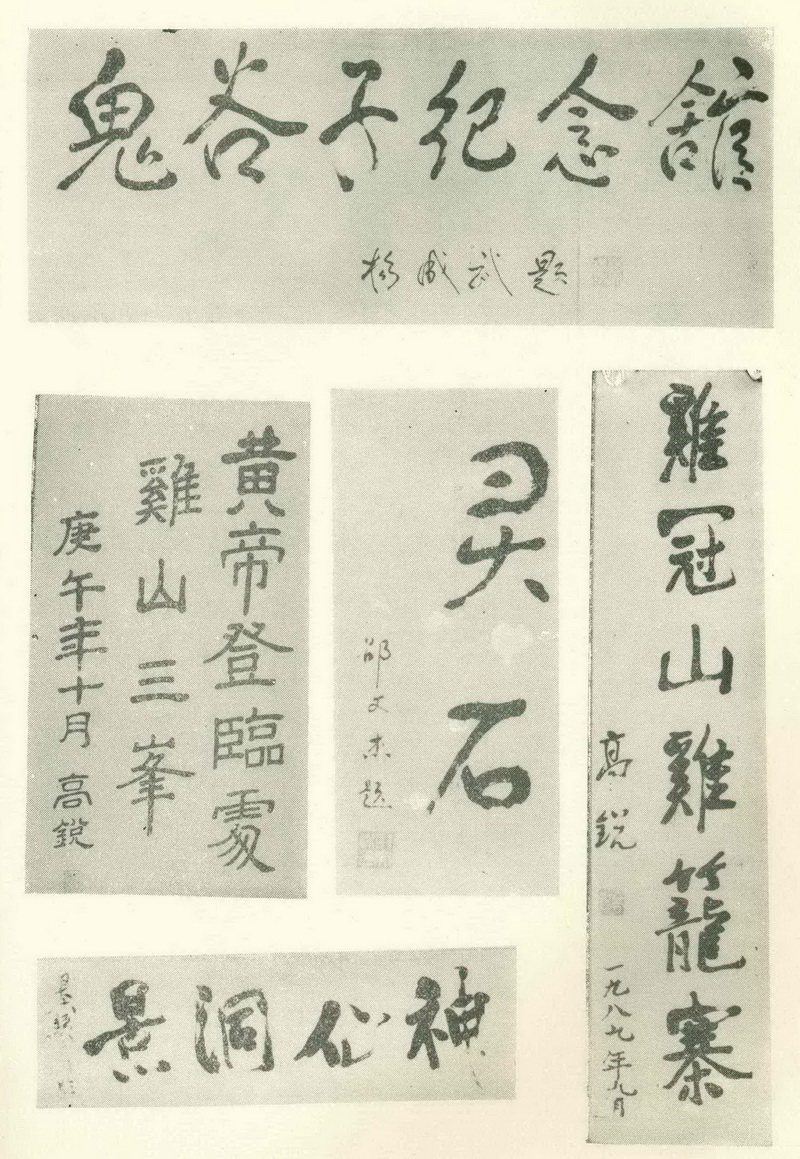 鬼谷子纪念舘
杨成武题
黄帝登臨處
雞山三峯
庚午年十月 高鋭
灵石
邵文杰题
雞冠山雞籠寨
高鋭
一九八七年九月
神仙洞景